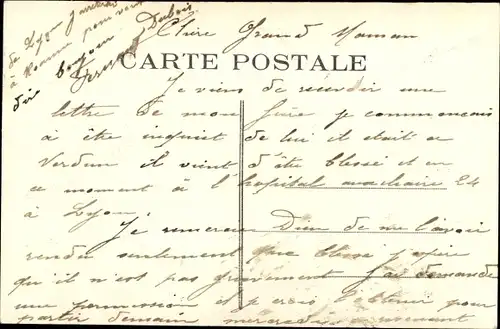 de Lyon j'arrêterai
à Roanne pour vous
dire bonjour
Fernand Dubois
Chère Grand Maman
CARTE POSTALE
Je viens de recevoir une
lettre de mon frère je commencais
à être inquiet de lui il etait a
Verdun il vient d'être blessé et en
ce moment à l'hopital auxiliaire 24
à Lyon.
Je remercie Dieu de me l'avoir
rendu seulement que blessé j'espère
qu'il n'est pas gravement j'ai demandé
une permission et je crois l'obtenir pour
partir demain mercredi